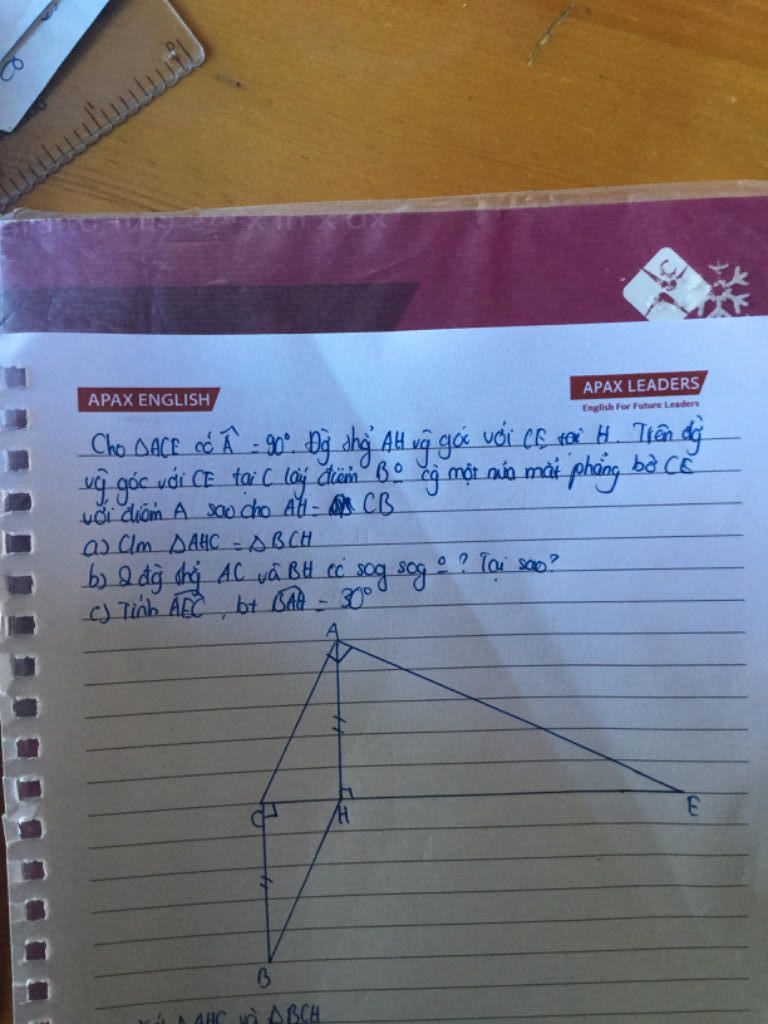 APAX ENGLISH
APAX LEADERS
English For Future Leaders
Cho ΔACE có Â = 90°. Đg thg̉ AH vg̃ góc với CE tại H. Trên đg̀
vg̃ góc với CE tại C lấy điểm B o cg̀ một nửa mặt phẳng bờ CE
với điểm A sao cho AH = CB
a) Clm ΔAHC = ΔBCH
b) 2 đg̀ thg̉ AC và BH có sog sog o? Tại sao?
c) Tính AEC, bt BAH = 30°
A
C
H
E
B
ΔAHC và ΔBCH